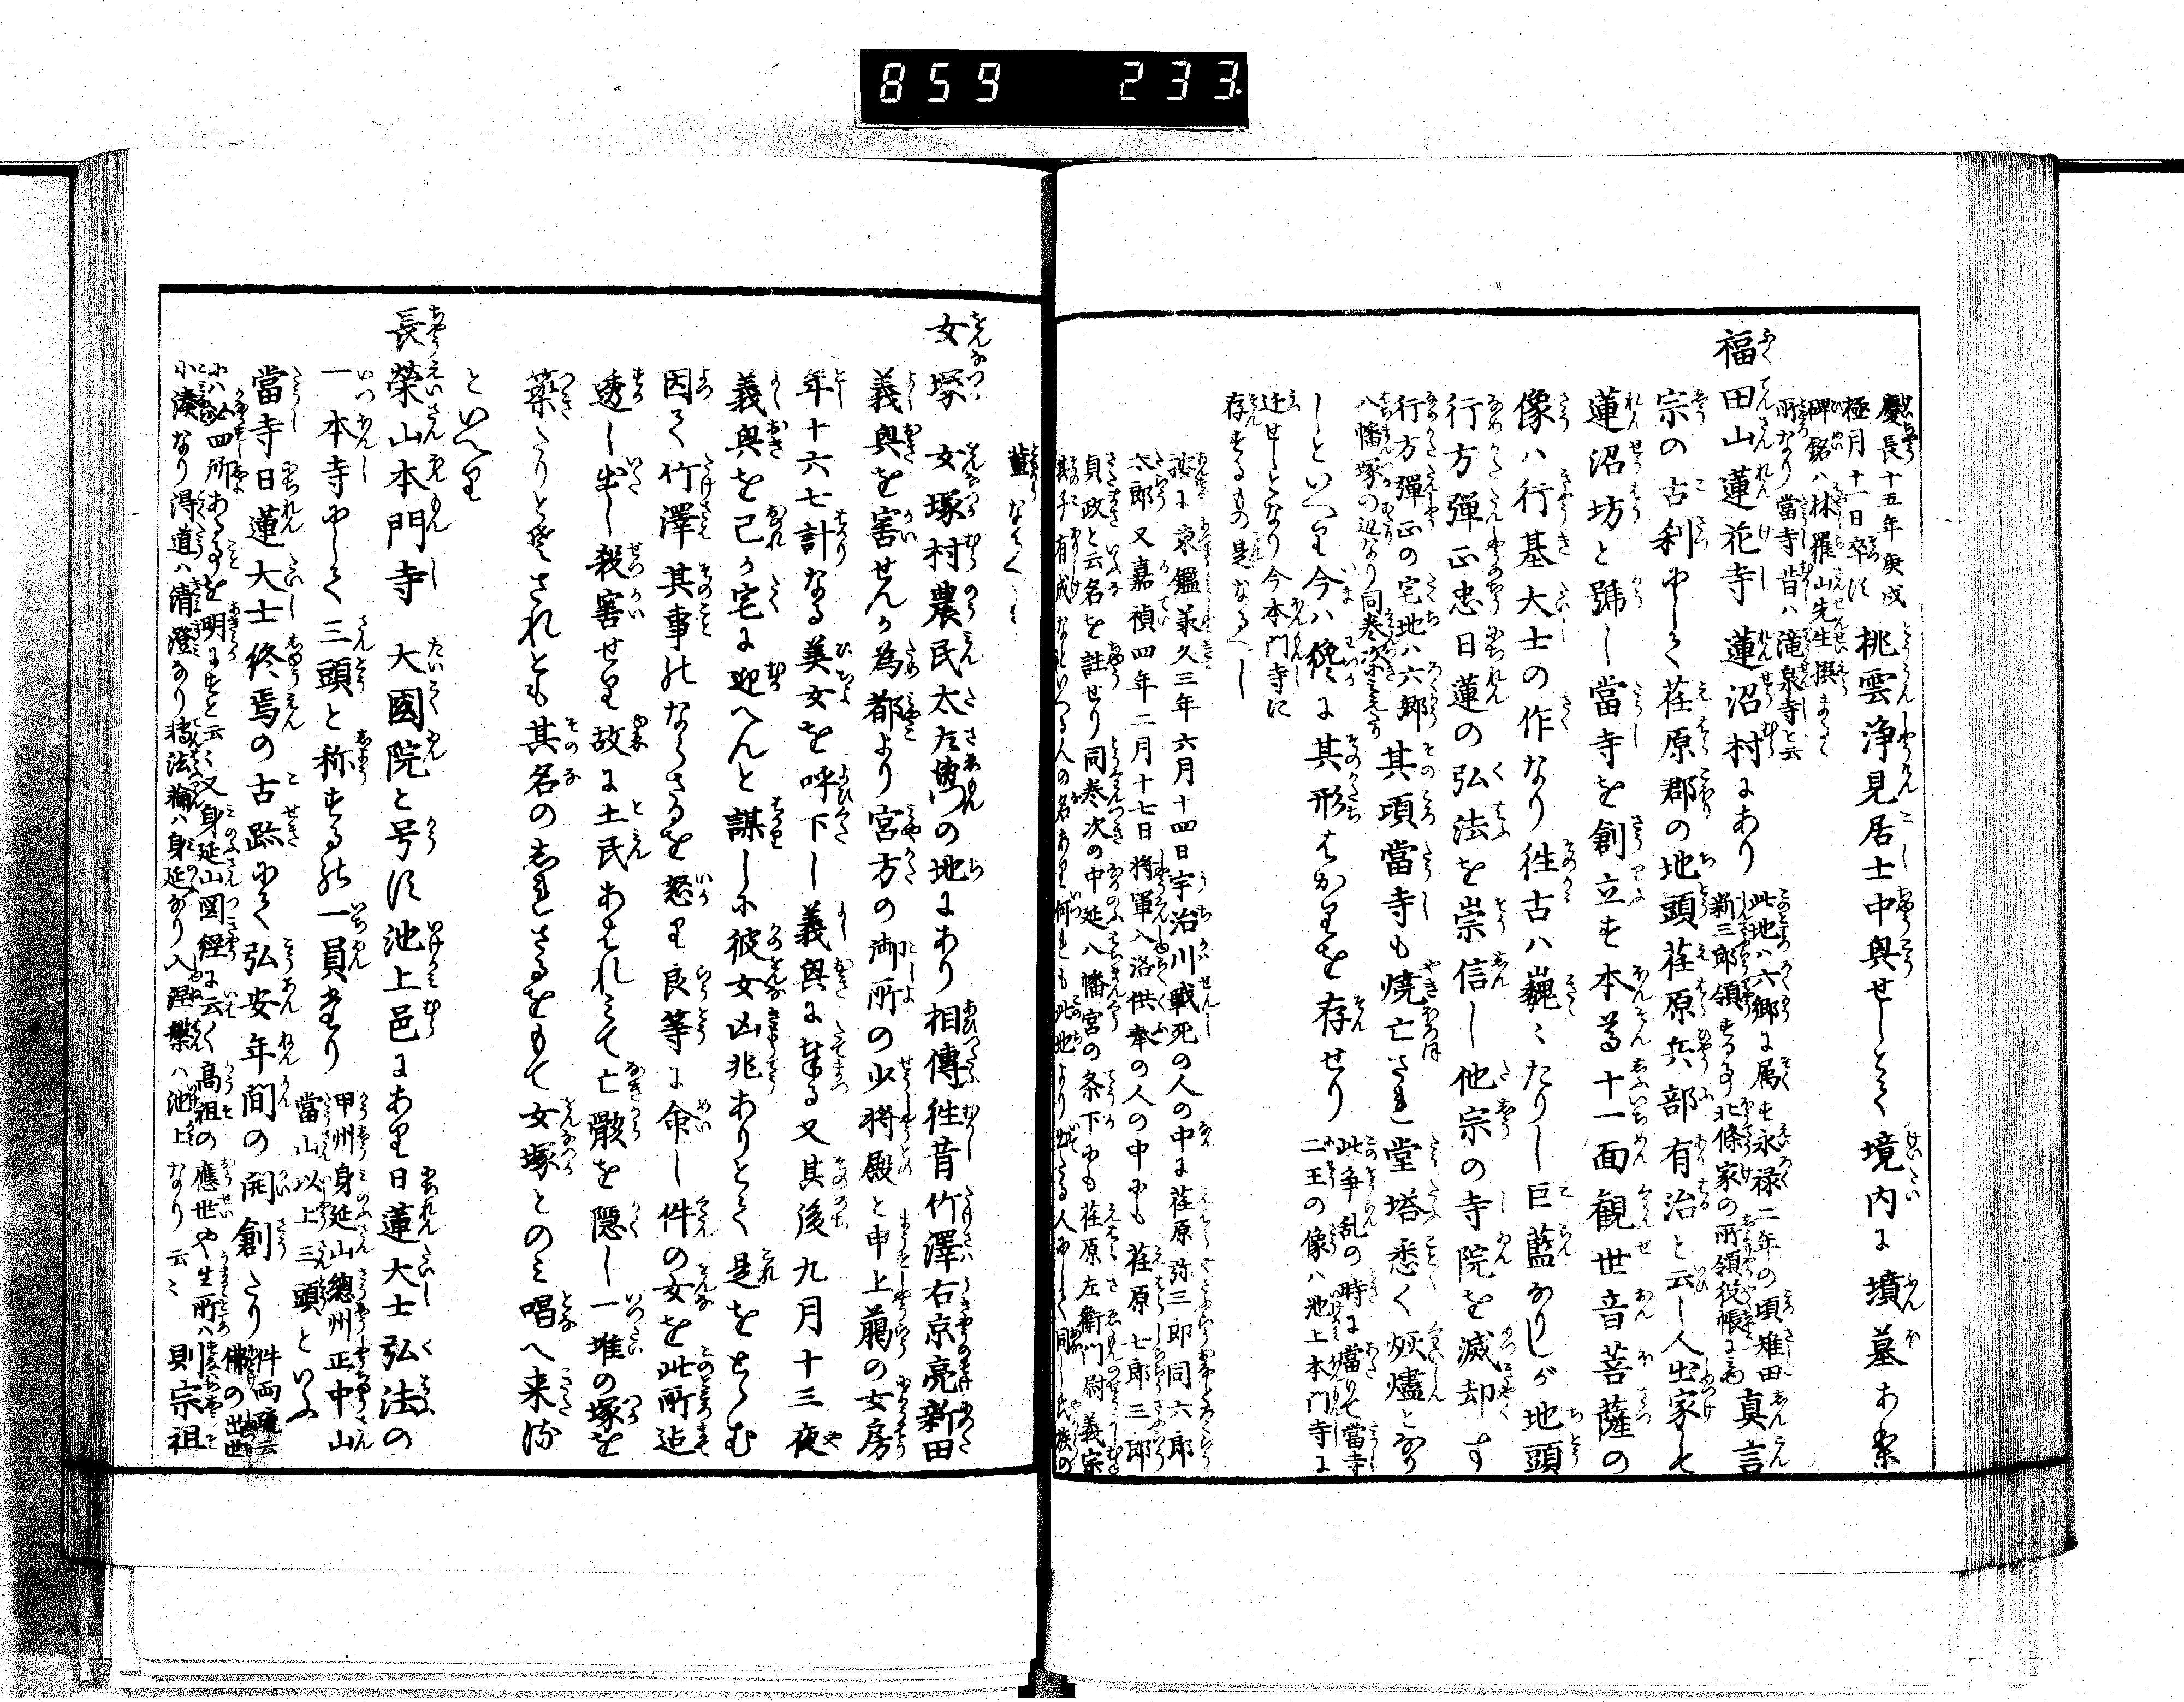 859 233.
慶長十五年庚戌
極月十一日卒す
桃雲浄見居士中興せしとて境内に墳墓あり
碑銘ハ林羅山先生撰
所なり當寺昔ハ滝泉寺と云
福田山蓮花寺 蓮沼村にあり
此地ハ六郷に属す永禄二年の頃雉田
新三郎領する事北條家の所領役帳に
真言
宗の古刹にして荏原郡の地頭荏原兵部有治と云し人出家して
蓮沼坊と號し當寺を創立す本尊十一面観世音菩薩の
像ハ行基大士の作なり往古ハ巍〻たりし巨藍なりしが地頭
行方弾正忠日蓮の弘法を崇信し他宗の寺院を滅却す
行方弾正の宅地ハ六郷
八幡塚の辺なり同巻次に
其頃當寺も焼亡され堂塔悉く灰燼となり
しといへり今ハ纔に其形はかりを存せり
此争乱の時に當りて當寺
二王の像ハ池上本門寺に
迁せしとなり今本門寺に
存するもの是なるへし
按に東鑑承久三年六月十四日宇治川戦死の人の中に荏原弥三郎同六郎
太郎又嘉禎四年二月十七日将軍入洛供奉の人の中にも荏原七郎三郎
貞政と云名を註せり同巻次の中延八幡宮の条下にも荏原左衛門尉義宗
其子有成なといへる人の名あり何れも此地より出たる人にして同し氏族の
なるへし
女塚 女塚村農民太左衛門の地にあり相傳往昔竹澤右京亮新田
義興を害せんか為都より宮方の御所の少将殿と申上﨟の女房
年十六七計なる美女を呼下し義興に 又其後九月十三夜
義興を己か宅に迎へんと謀しに彼女凶兆ありとて是をとゝむ
因て竹澤其事のならさるを怒り良等に命し件の女を此所迠
透し出し殺害せり故に土民あはれみて亡骸を隠し一堆の塚を
築たりと されとも其名の志れさるをもて女塚とのミ唱へ来
といへり
長榮山本門寺 大國院と号す池上邑にあり日蓮大士弘法の
一本寺にして三頭と称する の一員なり
甲州身延山總州正中山
當山以上三頭といふ
當寺日蓮大士終焉の古跡にて弘安年間の開創たり
件両 云
佛の出世
にハ必四所ある事を明にすと云〻又身延山図経に云く高祖の應世や生所ハ則宗祖
小湊なり得道ハ清澄なり轉法輪ハ身延なり入涅槃ハ池上なり云〻